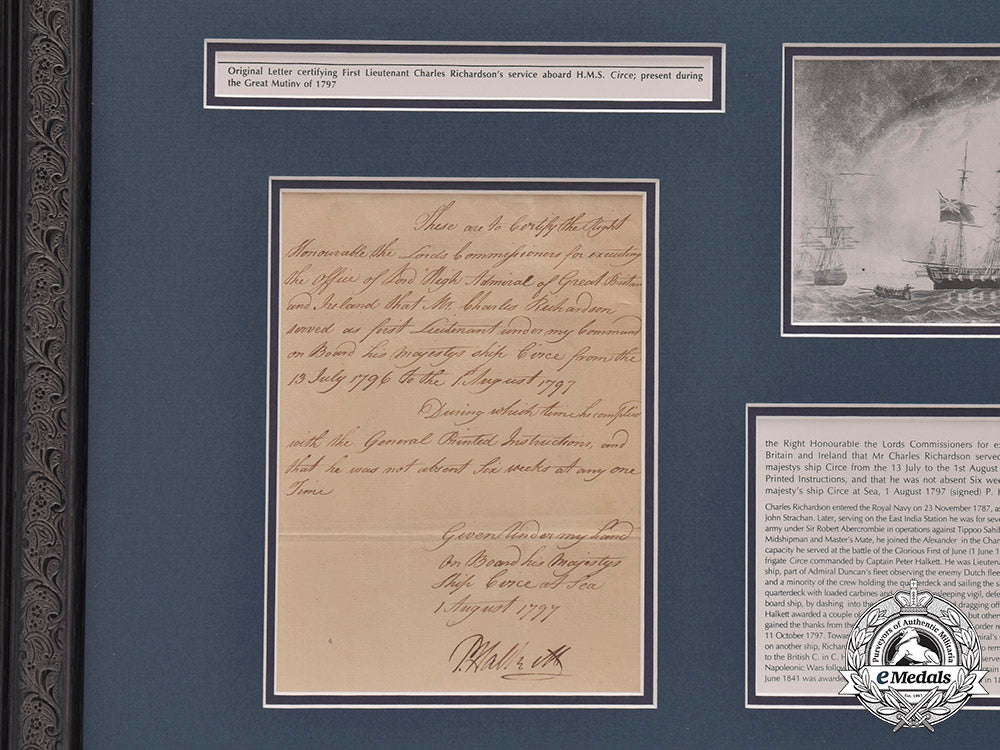 Original Letter certifying First Lieutenant Charles Richardson's service aboard H.M.S. Circe; present during
the Great Mutiny of 1797
These are to Certify the Right
Honourable the Lords Commissioners for executing
the Office of Lord High Admiral of Great Britain
and Ireland that Mr. Charles Richardson
served as first Lieutenant under my Command
on Board his Majestys ship Circe from the
13 July 1796 to the 1 August 1797
During which time he complied
with the General Printed Instructions, and
that he was not absent Six weeks at any one
Time
Given Under my hand
on Board his Majestys
ship Circe at Sea
1 August 1797
P. Halkett
the Right Honourable the Lords Commissioners for
Britain and Ireland that Mr Charles Richardson served
majestys ship Circe from the 13 July to the 1st August
Printed Instructions, and that he was not absent Six
majesty's ship Circe at Sea, 1 August 1797 (signed) P.
Charles Richardson entered the Royal Navy on 23 November 1787,
John Strachan. Later, serving on the East India Station he was for
army under Sir Robert Abercrombie in operations against Tippoo
Midshipman and Master's Mate, he joined the Alexander in the
capacity he served at the battle of the Glorious First of June (1 June
frigate Circe commanded by Captain Peter Halkett. He was
ship, part of Admiral Duncan's fleet observing the enemy Dutch
and a minority of the crew holding the quarterdeck and sailing the
quarterdeck with loaded carbines and sleeping vigil,
board ship, by dashing into the dragging
Halkett awarded a couple of but
gained the thanks from the order
11 October 1797.
on another ship, Richardson
to the British C. in C.
Napoleonic Wars
June 1841 was in
Purveyors of Authentic Militaria
eMedals
Est. 1967